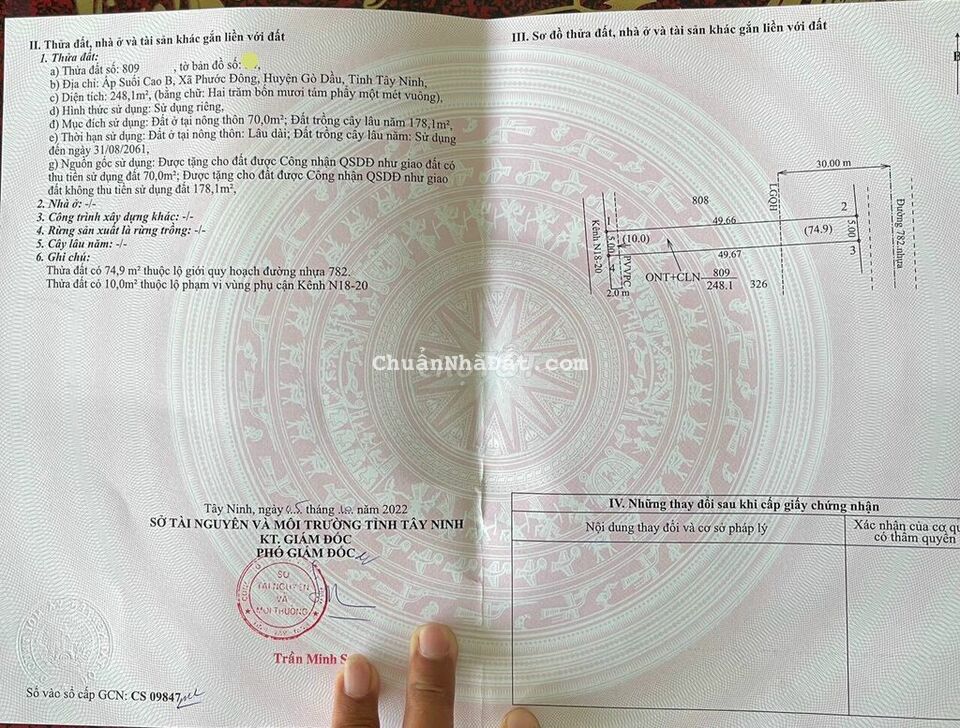 II. Thửa đất, nhà ở và tài sản khác gắn liền với đất
1. Thửa đất:
a) Thửa đất số: 809 , tờ bản đồ số:
b) Địa chỉ: Ấp Suối Cao B, Xã Phước Đông, Huyện Gò Dầu, Tỉnh Tây Ninh,
c) Diện tích: 248,1m², (bằng chữ: Hai trăm bốn mươi tám phẩy một mét vuông),
d) Hình thức sử dụng: Sử dụng riêng,
đ) Mục đích sử dụng: Đất ở tại nông thôn 70,0m²; Đất trồng cây lâu năm 178,1m²,
e) Thời hạn sử dụng: Đất ở tại nông thôn: Lâu dài; Đất trồng cây lâu năm: Sử dụng
đến ngày 31/08/2061,
g) Nguồn gốc sử dụng: Được tặng cho đất được Công nhận QSDĐ như giao đất có
thu tiền sử dụng đất 70,0m²; Được tặng cho đất được Công nhận QSDĐ như giao
đất không thu tiền sử dụng đất 178,1m²,
2. Nhà ở: -/-
3. Công trình xây dựng khác: -/-
4. Rừng sản xuất là rừng trồng: -/-
5. Cây lâu năm: -/-
6. Ghi chú:
Thửa đất có 74,9 m² thuộc lộ giới quy hoạch đường nhựa 782.
Thửa đất có 10,0m² thuộc lộ phạm vi vùng phụ cận Kênh N18-20
Tây Ninh, ngày 05 tháng 10 năm 2022
SỞ TÀI NGUYÊN VÀ MÔI TRƯỜNG TỈNH TÂY NINH
KT. GIÁM ĐỐC
PHÓ GIÁM ĐỐC
SỞ
TÀI NGUYÊN
VÀ
MÔI TRƯỜNG
Trần Minh S
Số vào sổ cấp GCN: CS 09847
III. Sơ đồ thửa đất, nhà ở và tài sản khác gắn liền với đất
B
30.00 m
LGQH
808
2
1
49.66
Kênh N18-20
5.00
(10.0)
(74.9)
5.00
Đường 782.nhựa
3
49.67
4
PVVPC
2.0 m
ONT+CLN
809
248.1
326
ChuẩnNhàĐất.com
IV. Những thay đổi sau khi cấp giấy chứng nhận
Nội dung thay đổi và cơ sở pháp lý
Xác nhận của cơ qu
có thẩm quyền